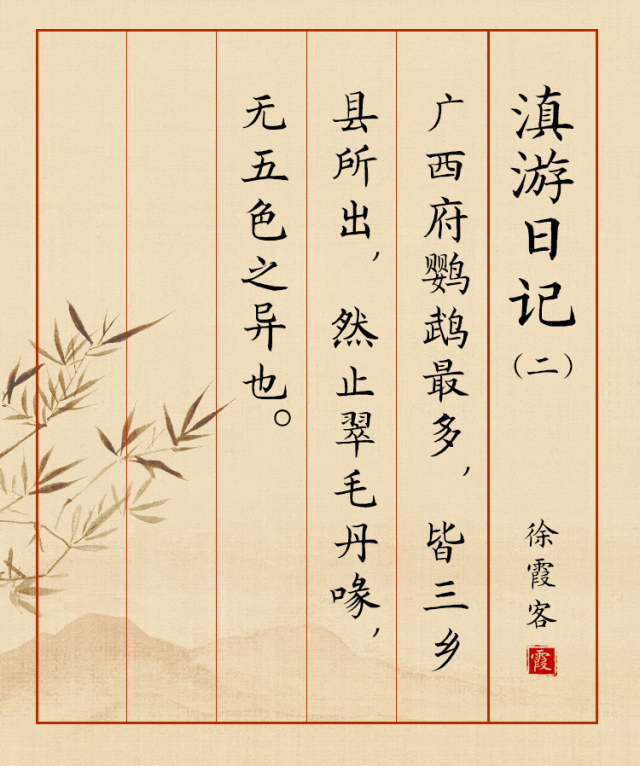 滇游日记
（二）
徐霞客
霞
广西府鹦鹉最多，皆三乡
县所出，然止翠毛丹喙，
无五色之异也。